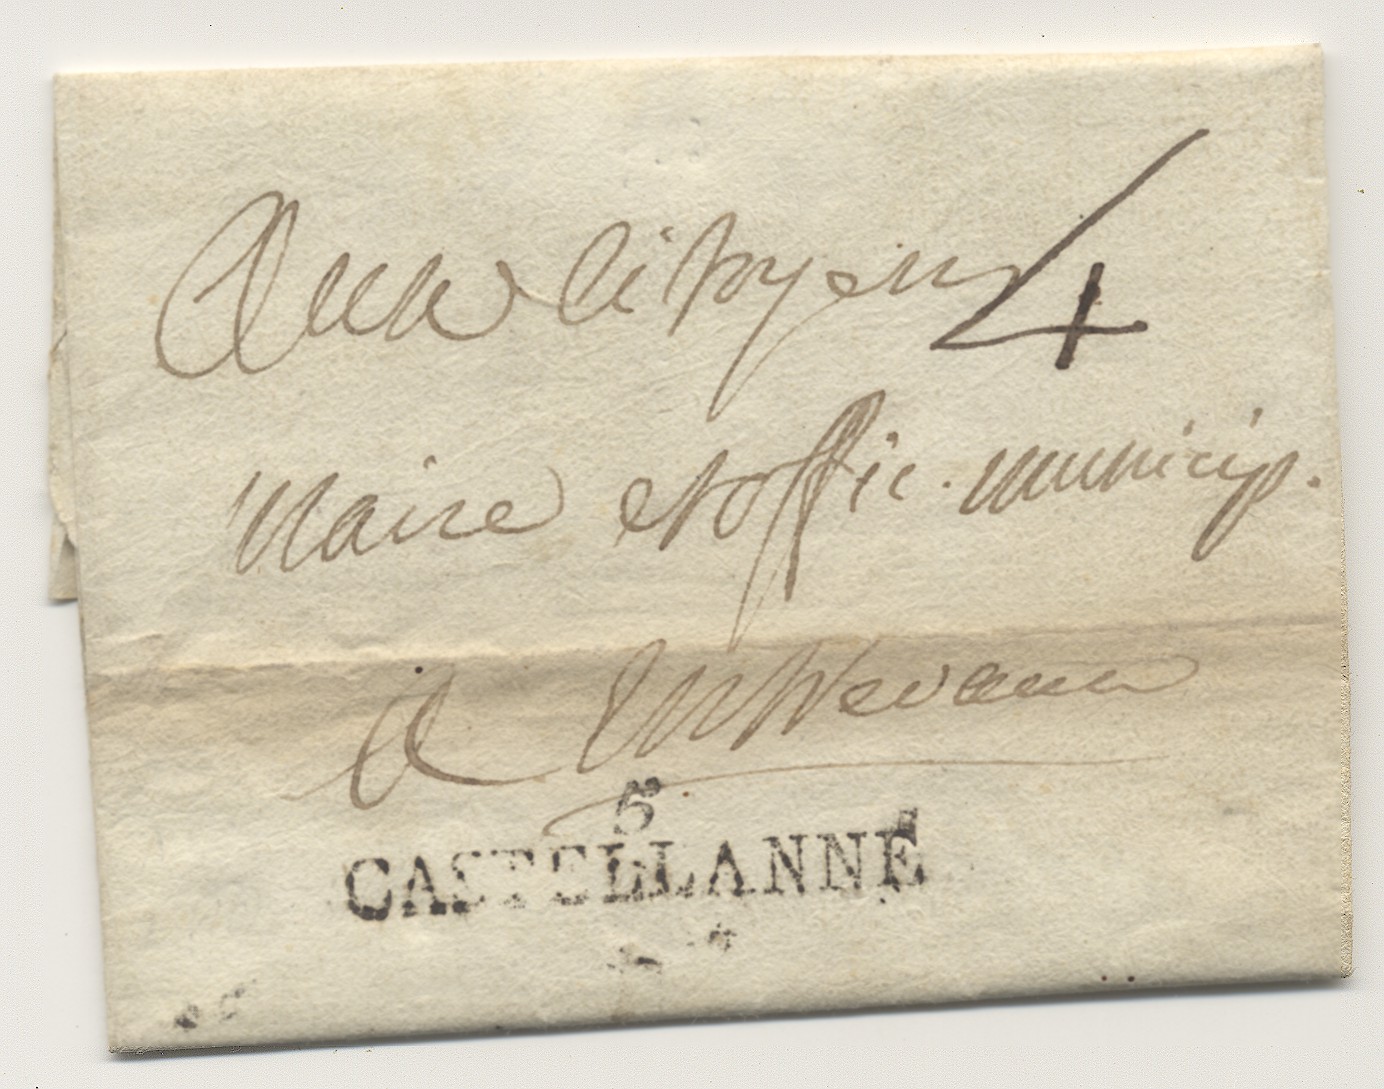 Aux Citoyens 4
Maire et offic. municip.
a Entrevaux
5
CASTELLANNE